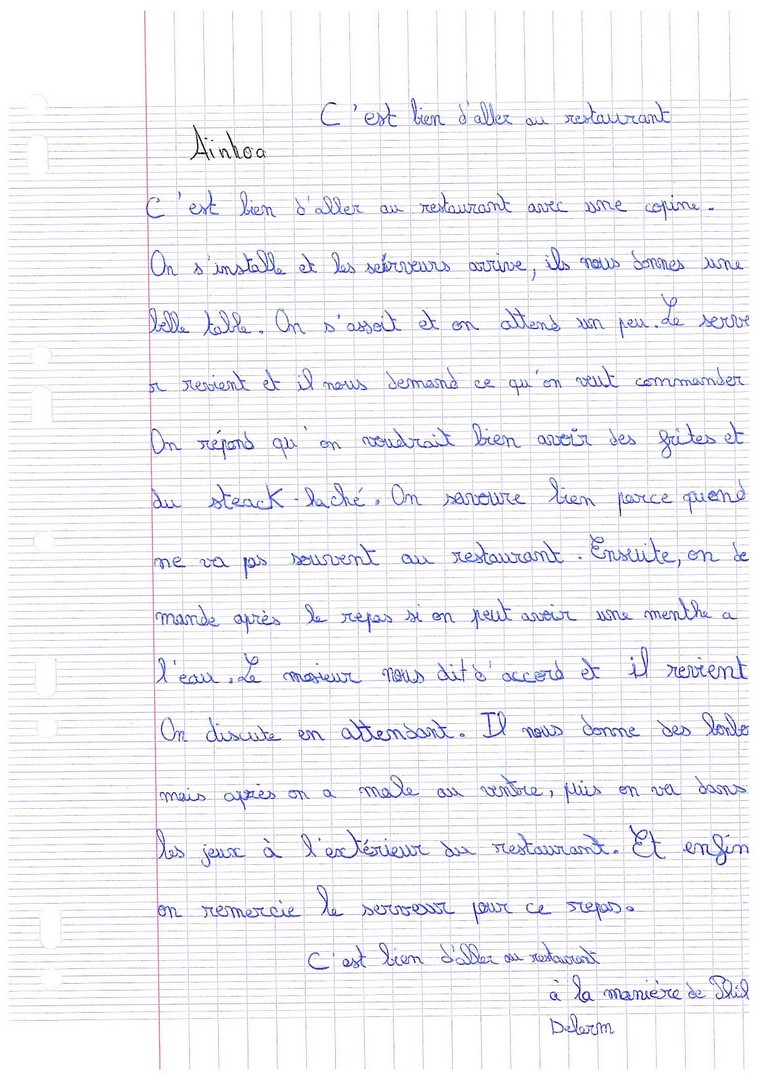 C'est bien d'aller au restaurant
Ainhoa
C'est bien d'aller au restaurant avec une copine.
On s'installe et les serveurs arrive, ils nous donnes une
belle table. On s'assoit et on attend un peu. Le serve
r revient et il nous demand ce qu'on veut commander
On répond qu'on voudrait bien avoir des frites et
du steack-haché. On savoure bien parce quend
ne va pas souvent au restaurant. Ensuite, on de
mande après le repas si on peut avoir une menthe a
l'eau. Le mosieur nous dit d'accord et il revient
On discute en attendant. Il nous donne des bonbo
mais après on a male au ventre, puis on va dans
les jeux à l'extérieur du restaurant. Et enfin
on remercie le serveur pour ce repas.
C'est bien d'aller au restaurant
à la manière de Phil
Delerm